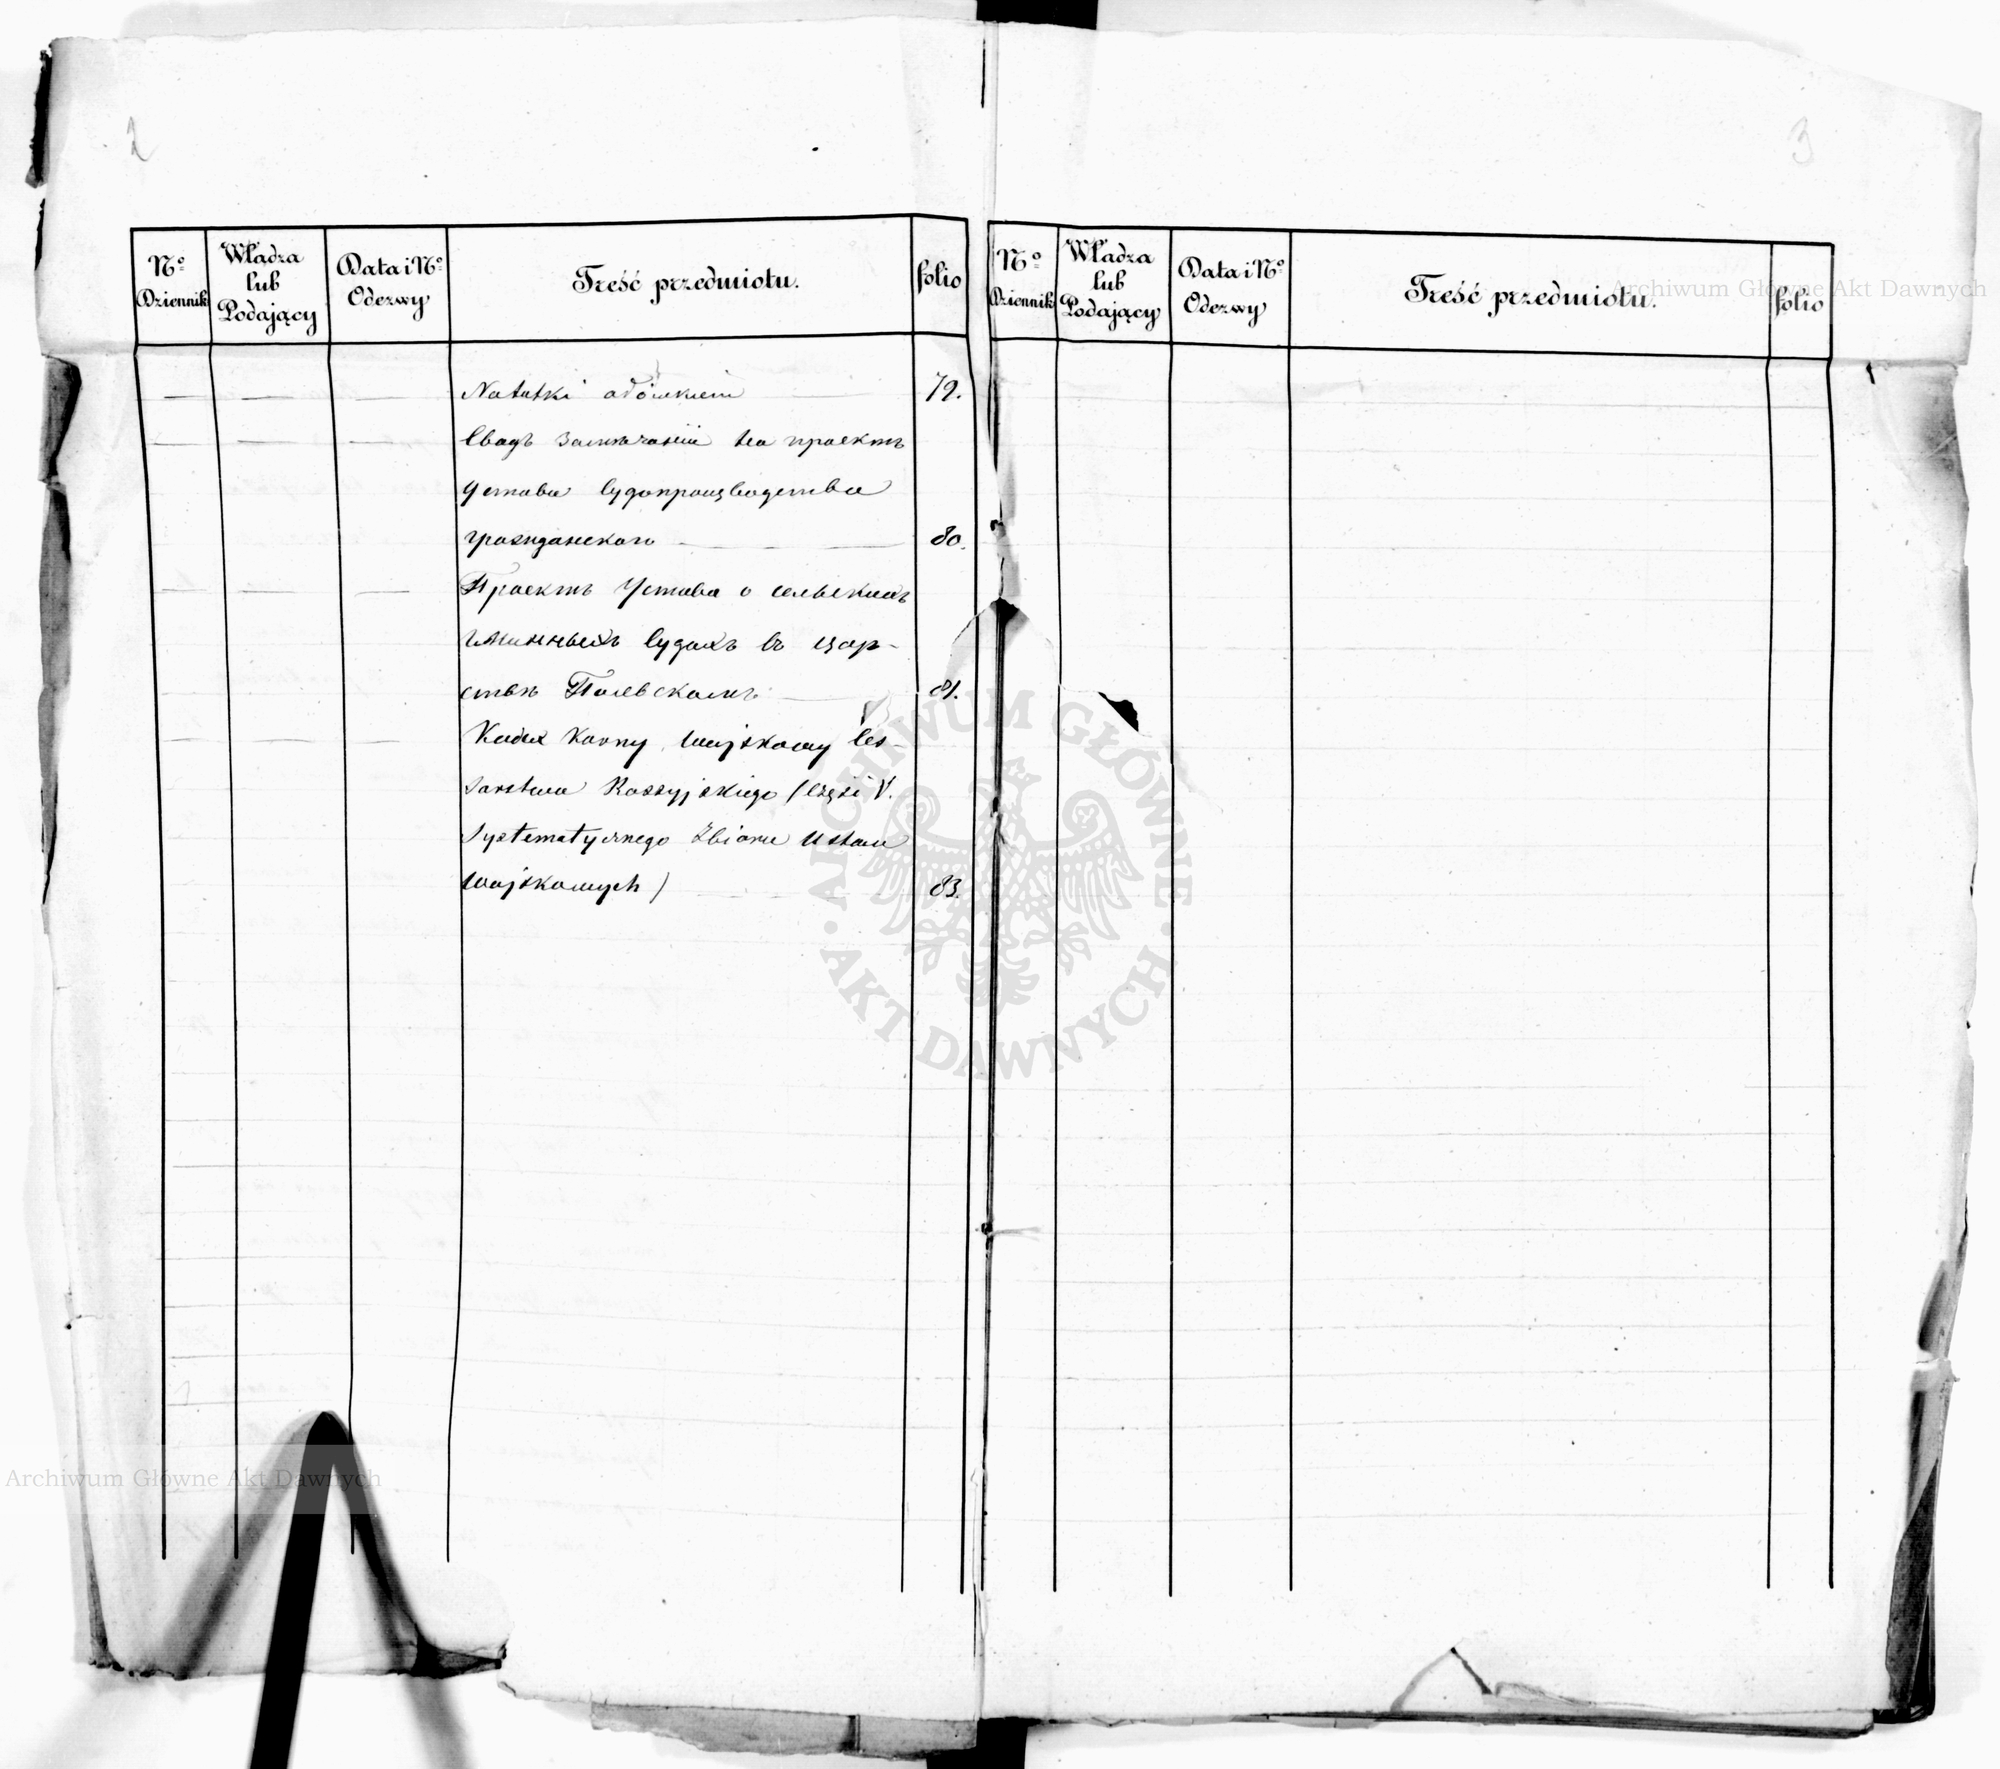 2
Nº Dziennik
Władza lub Podający
Data i Nº Odezwy
Treść przedmiotu.
folio
— — — Notatki ołówkiem — 79.
— — — Сводъ замѣчаній на проектъ
Устава судопроизводства
гражданскаго — — 80.
— — — Проектъ Устава о сельскихъ
гминныхъ судахъ въ цар-
ствѣ Польскомъ — 81.
— — — Kodex Karny Wojskowy Ces-
sarstwa Rossyjskiego (Część V.
Systematycznego Zbioru Ustaw
Wojskowych) — 83.
3
Nº Dziennik
Władza lub Podający
Data i Nº Odezwy
Treść przedmiotu.
folio
Archiwum Główne Akt Dawnych
ARCHIWUM GŁÓWNE
AKT DAWNYCH
Archiwum Główne Akt Dawnych